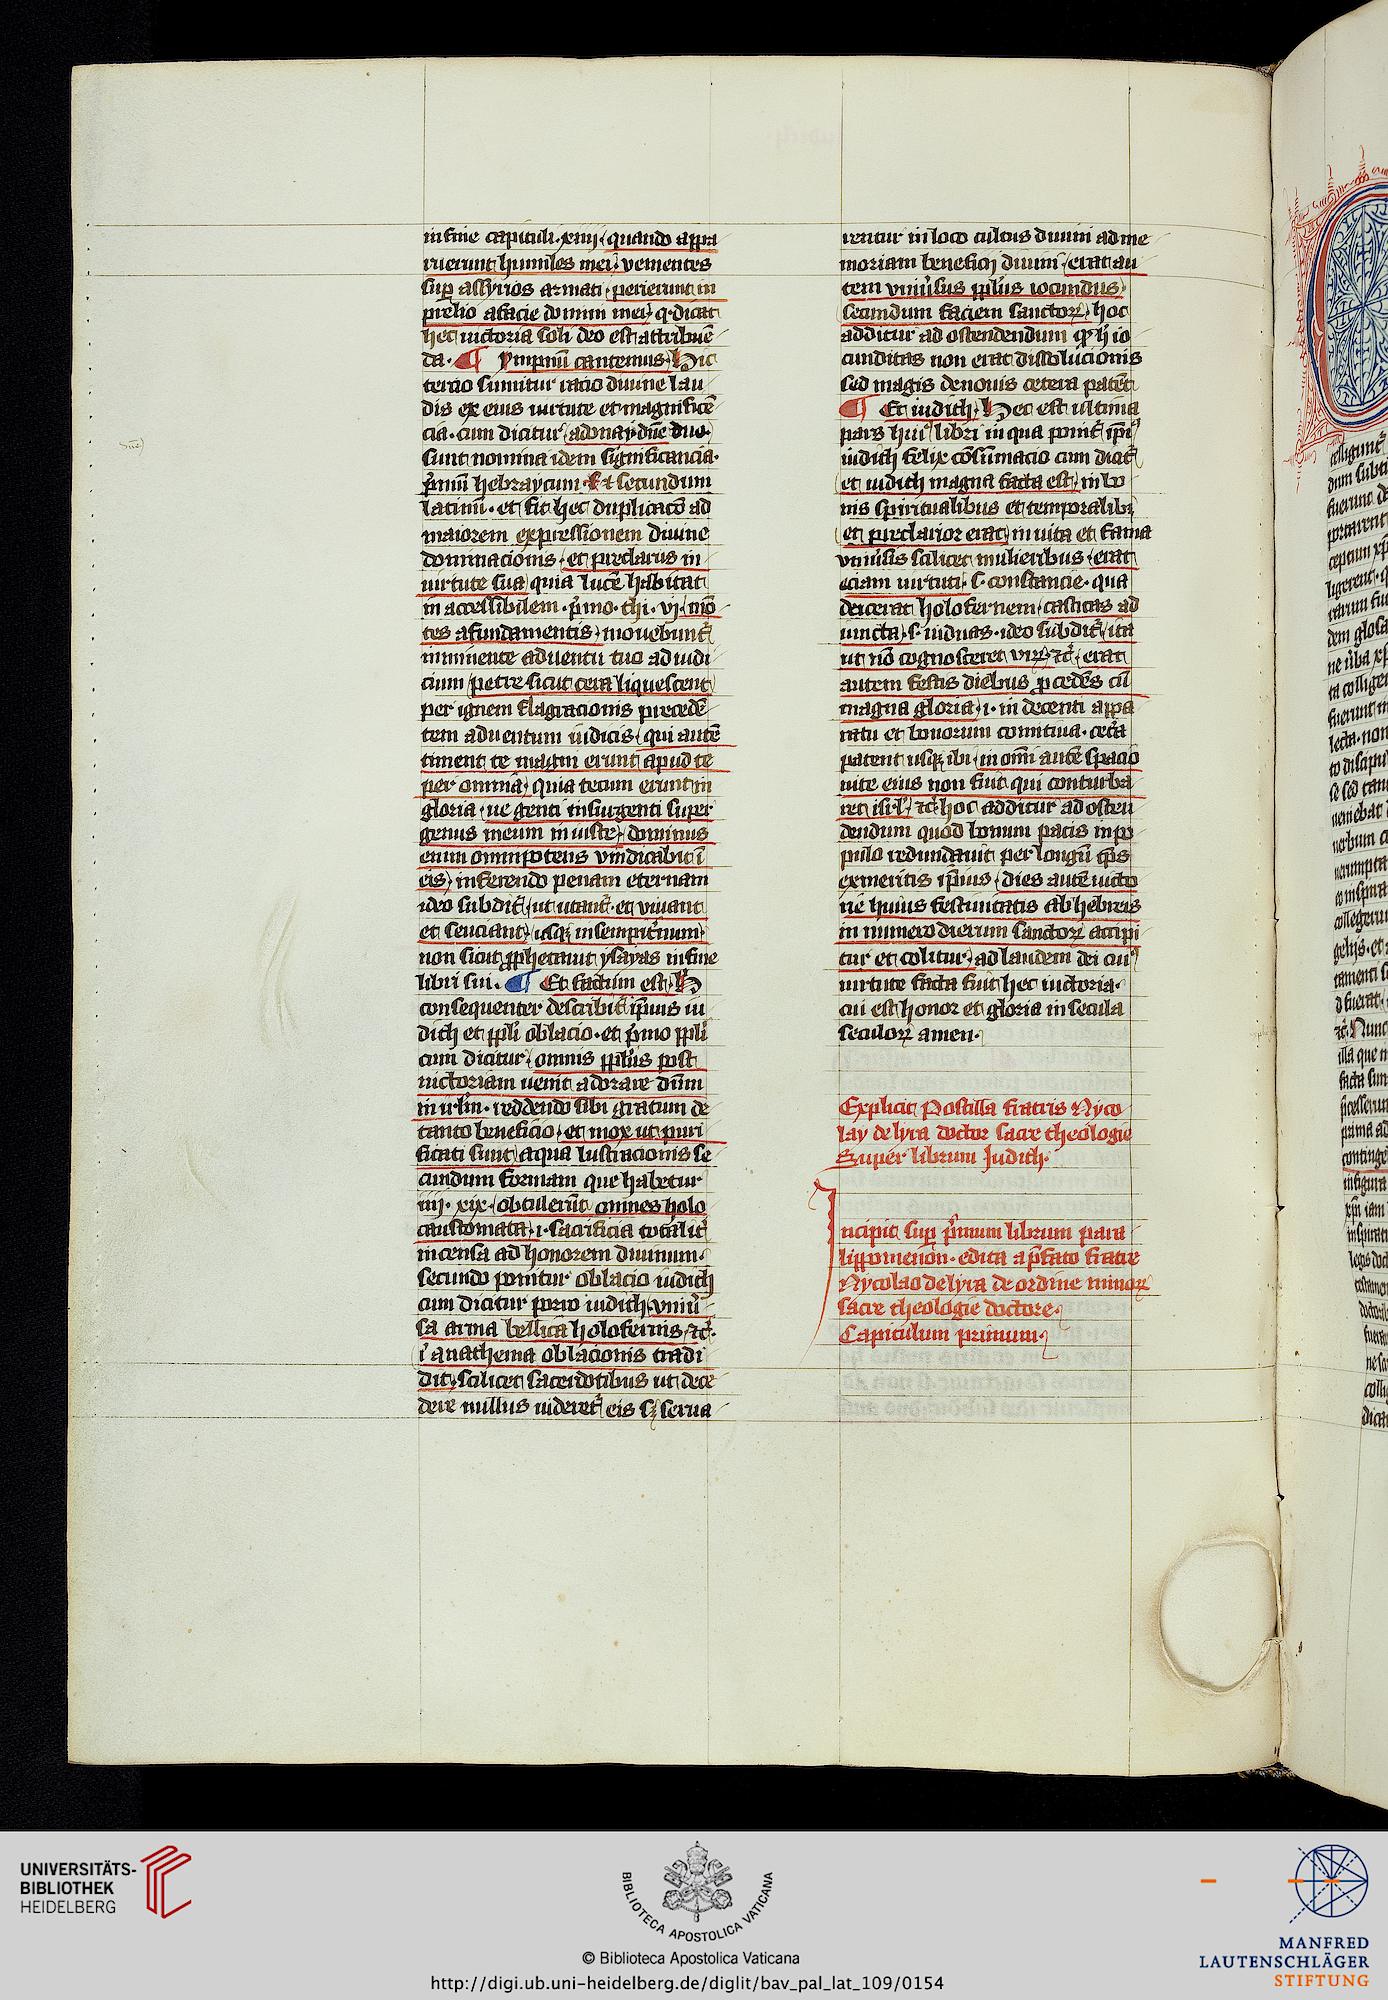 in fine capituli · xiiij · quando appa
ruerunt humiles mei · vementes
sup assyrios armati · perierunt in
prelio a facie domini mei · q · dicat
hec victoria soli deo est attribuē
da · ¶ Ympnū cantemus · Hic
tercio sumitur racio diuine lau
dis ex eius virtute et magnificē
cia · cum dicitur adonay dn̄e duo ·
sunt nomina idem significancia ·
p̄mū hebraycum Et secundum
latinū · et fit hec duplicacō ad
maiorem expressionem diuine
dominacionis · et preclarus in
virtute sua quia lucē habitat
in accessibilem · p̄mo · thi · vj · mō
tes a fundamentis mouebunt᷑
imminente aduentu tuo ad iudi
cium petre sicut cera liquescent
per ignem flagracionis precedē
tem aduentum iudicis · qui autē
timent te magni erunt apud te
per omnia · quia tecum erunt in
gloria · ve genti insurgenti super
genus meum in iuste · dominus
enim omnipotens vindicabit ī
eis · inferendo penam eternam
ideo subdit᷑ · ut urant᷑ · et viuant
et senciant · usqꝫ in sempit᷑num
non sicut ꝓphetauit ysayas in fine
libri sui · ¶ Et factum est · H
consequenter describit᷑ ip̄ius iu
dith et ppl̄i oblacio · et p̄mo ppl̄i
cum dicitur · omnis ppl̄us post
victoriam venit adorare dn̄m
in irl̄m · reddendo sibi gratum de
tanto beneficio · et mox ut puri
ficati sunt aqua lustracionis se
cundum formam que habetur
iiij · xix · obtulerūt omnes holo
caustomata · i · sacrificia totalit᷑
incensa ad honorem diuinum ·
secundo ponitur oblacio iudith
cum dicitur porro iudith · vniu᷑
sa arma bellica holofernis · ⁊c̄ ·
ī anathema oblacionis tradi
dit · scilicet sacerdotibus ut dece
dere nullus videret᷑ eis sꝫ serua
rentur in loco cultus diuini ad me
moriam beneficij diuini · erat au
tem vniu᷑sus ppl̄us iocundus
secundum faciem sanctoꝝ · hoc
additur ad ostendendum qꝫ h̄ io
cunditas non erat dissolucionis
sed magis deuocionis cetera patēt
¶ Et iudith · Hec est ultima
pars hui᷒ libri in qua ponit᷑ ip̄i᷒
iudith felix cōsumacio cum dicit᷑
et iudith magna facta est · in bo
nis spiritualibus et temporalib᷒
et preclarior erat in vita et fama
vniu᷑sis scilicet mulieribus · erat
eciam virtuti · s · constancie · qua
deicerat holofernem · castitas ad
iuncta · s · viduas · ideo subdit᷑ · ita
ut nō cognosceret viꝝ · ⁊c̄ · erat
autem festis diebus ꝓcedēs cū
magna gloria · i · in decenti appa
ratu et bonorum comitiua · cet᷑a
patent usqꝫ ibi · in omī autē spacio
vite eius non fuit qui conturba
ret isrl̄ · ⁊c̄ hoc additur ad osten
dendum quod bonum pacis in po
pulo redundauit per longū tp̄s
ex meritis ip̄ius · dies autē victo
rie huius festiuitatis ab hebreis
in numero dierum sanctoꝝ accipi
tur et colitur · ad laudem dei cui᷒
virtute facta fuit hec victoria ·
cui est honor et gloria in secula
seculoꝝ amen ·
Explicit Postilla fratris Nyco
lay de lyra doctor sacre theologie
Super librum Judith ·
Incipit sup p̄mum librum para
lippomenon · edita a p̄fato fratre
Nycolao de lyra de ordine minoꝝ
sacre theologie doctore ·
Capitulum primum ·
UNIVERSITÄTS-
BIBLIOTHEK
HEIDELBERG
BIBLIOTECA APOSTOLICA VATICANA
© Biblioteca Apostolica Vaticana
http://digi.ub.uni-heidelberg.de/diglit/bav_pal_lat_109/0154
MANFRED
LAUTENSCHLÄGER
STIFTUNG